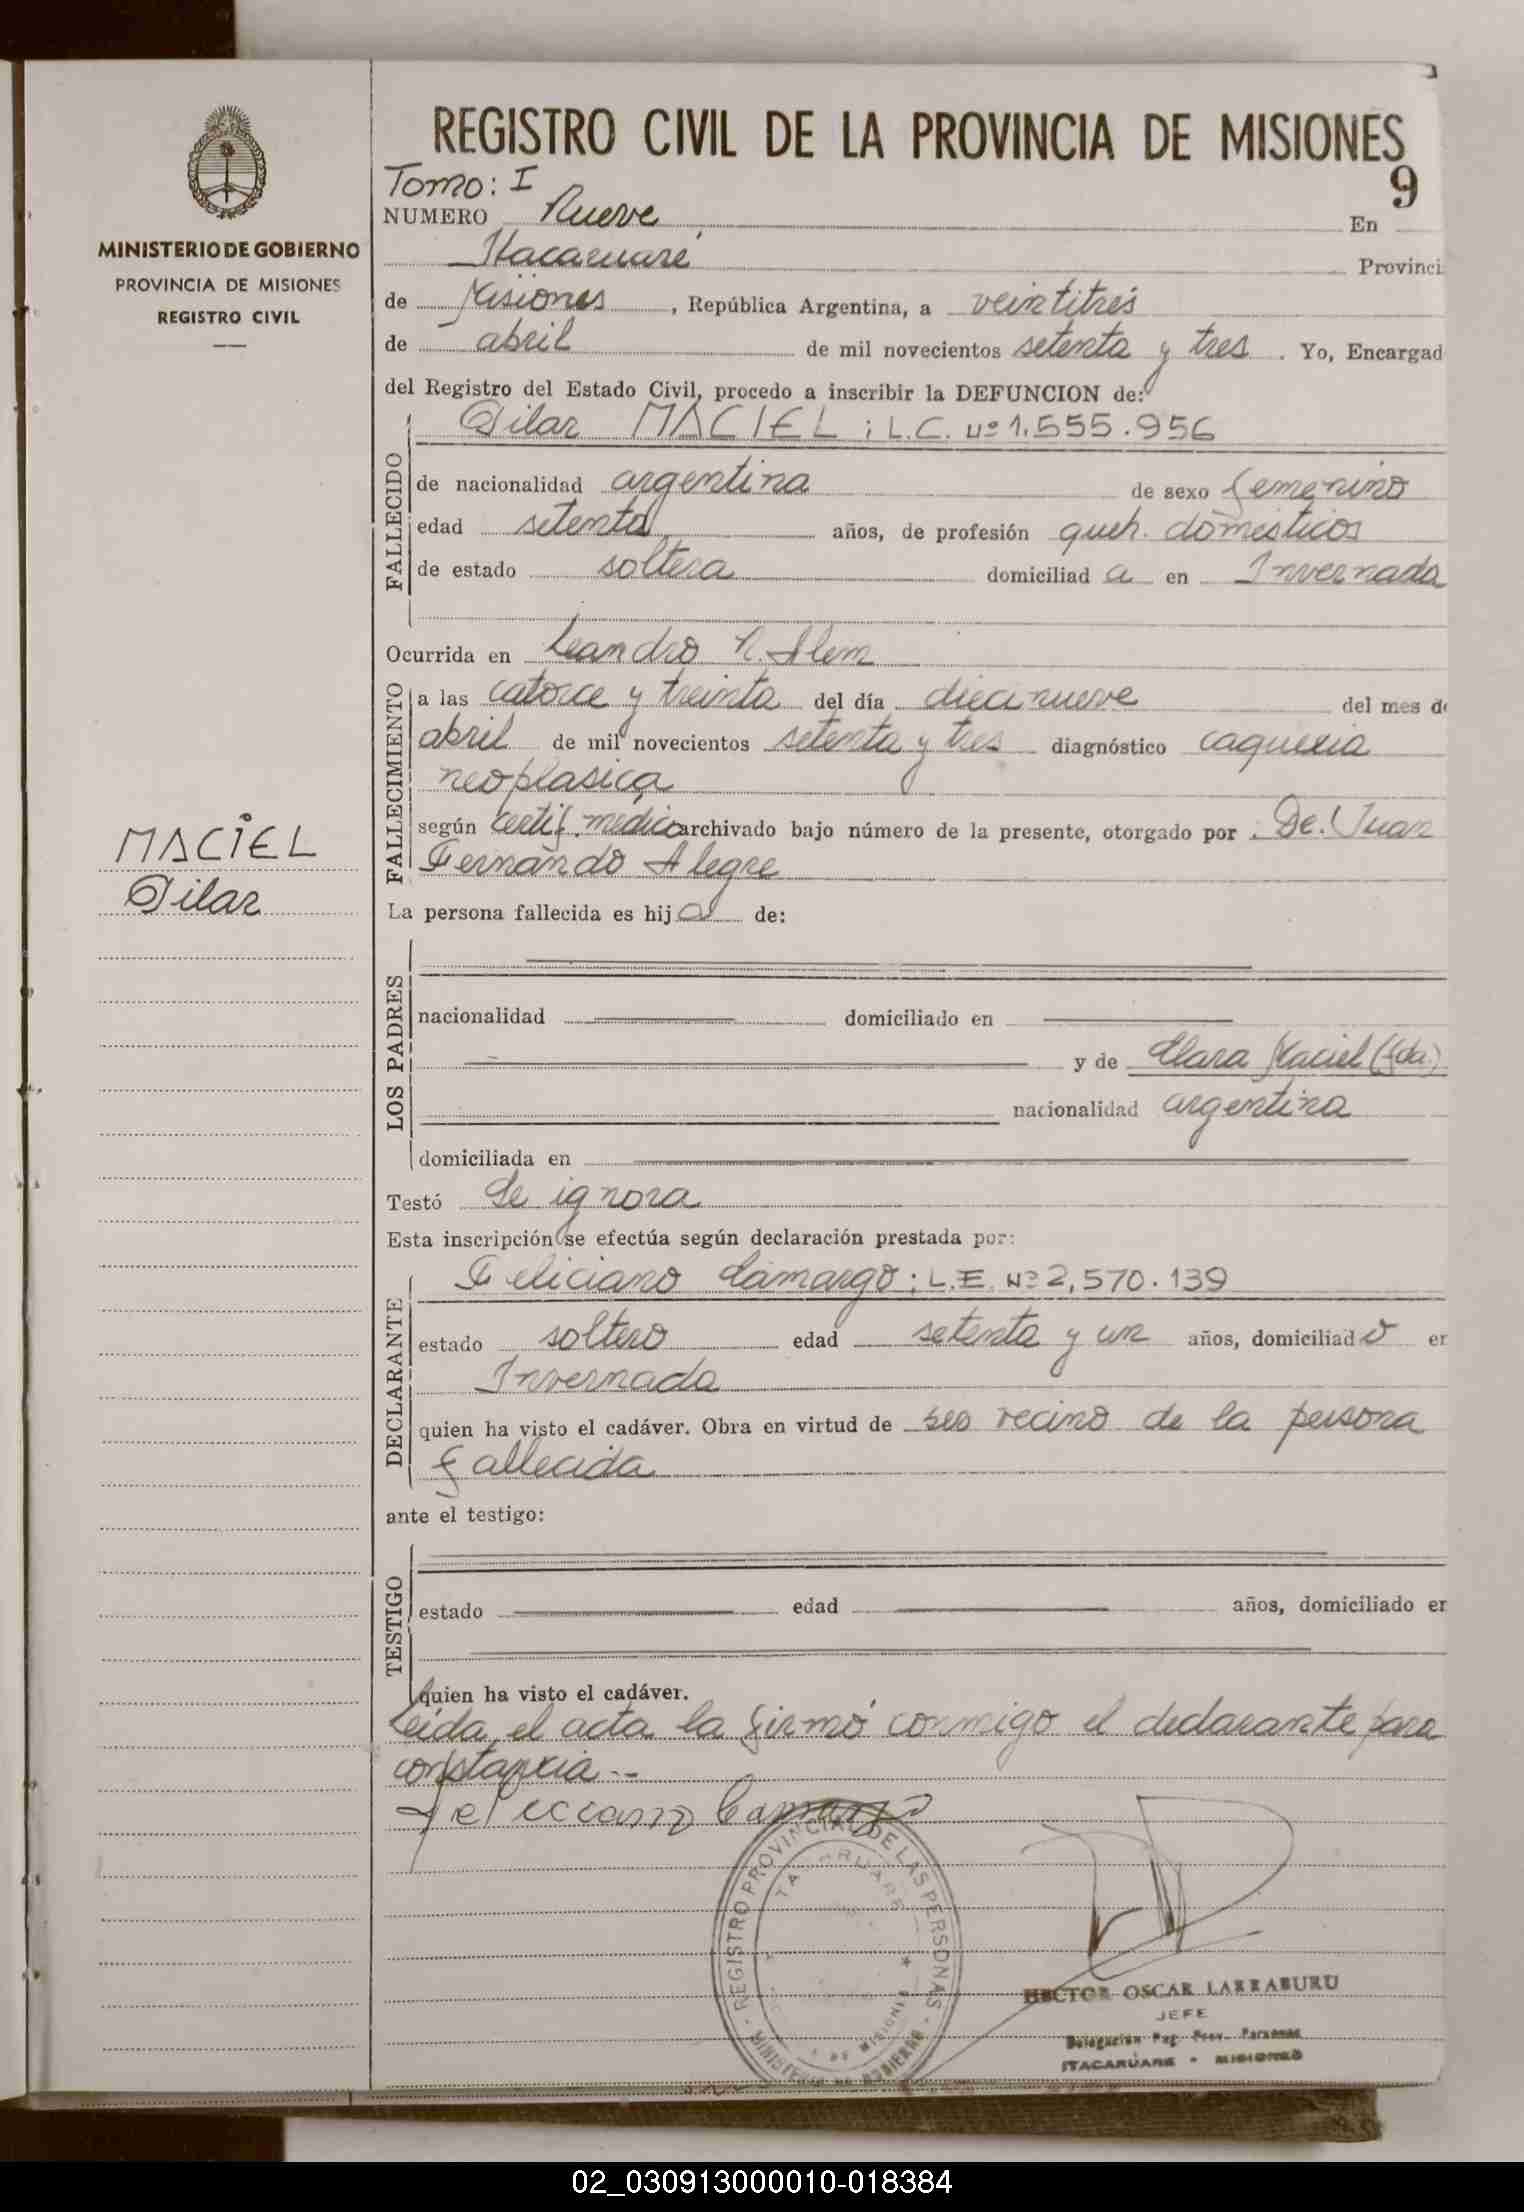 REGISTRO CIVIL DE LA PROVINCIA DE MISIONES
9
MINISTERIO DE GOBIERNO
PROVINCIA DE MISIONES
REGISTRO CIVIL
MACIEL
Pilar
Tomo: I
NUMERO Nueve En
Itacaruaré Provinci
de Misiones, República Argentina, a veintitrés
de abril de mil novecientos setenta y tres. Yo, Encargad
del Registro del Estado Civil, procedo a inscribir la DEFUNCION de:
Pilar MACIEL; L.C. Nº 1.555.956
FALLECIDO
de nacionalidad argentina de sexo femenino
edad setenta años, de profesión queh. domésticos
de estado soltera domiciliad a en Invernada
Ocurrida en Leandro N. Alem
FALLECIMIENTO
a las catorce y treinta del día diecinueve del mes de
abril de mil novecientos setenta y tres diagnóstico caquexia
neoplasica
según certif. medico archivado bajo número de la presente, otorgado por Dr. Juan
Fernando Alegre
La persona fallecida es hij a de:
LOS PADRES
nacionalidad domiciliado en
y de Clara Maciel (fda.)
nacionalidad argentina
domiciliada en
Testó Se ignora
Esta inscripción se efectúa según declaración prestada por:
Feliciano Camargo; L.E. Nº 2,570.139
DECLARANTE
estado soltero edad setenta y un años, domiciliad o en
Invernada
quien ha visto el cadáver. Obra en virtud de ser vecino de la persona
fallecida
ante el testigo:
TESTIGO
estado edad años, domiciliado en
quien ha visto el cadáver.
Leída el acta la firmó conmigo el declarante para
constancia.--
Feliciano Camargo
REGISTRO PROVINCIAL DE LAS PERSONAS
MINISTERIO DE GOBIERNO
ITACARUARE
DE MISIONES
HECTOR OSCAR LARRABURU
JEFE
Delegación Reg. Prov. Personas
ITACARUARE - MISIONES
02_030913000010-018384